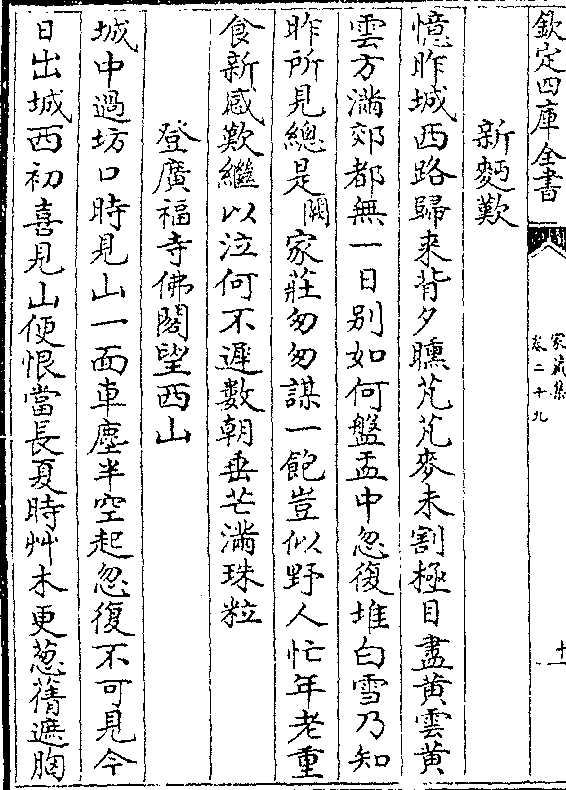 欽定四庫全書
家藏集
卷二十九
十一
新麪歎
憶昨城西路歸来背夕曛芃芃麥未割極目盡黄雲黄
雲方滿郊都無一日别如何盤盂中忽復堆白雪乃知
昨所見總是闕家莊匆匆謀一飽豈似野人忙年老重
食新感歎繼以泣何不遲數朝垂芒滿珠粒
登廣福寺佛閣望西山
城中過坊口時見山一面車塵半空起忽復不可見今
日出城西初喜見山便恨當長夏時艸木更葱蒨遮胸